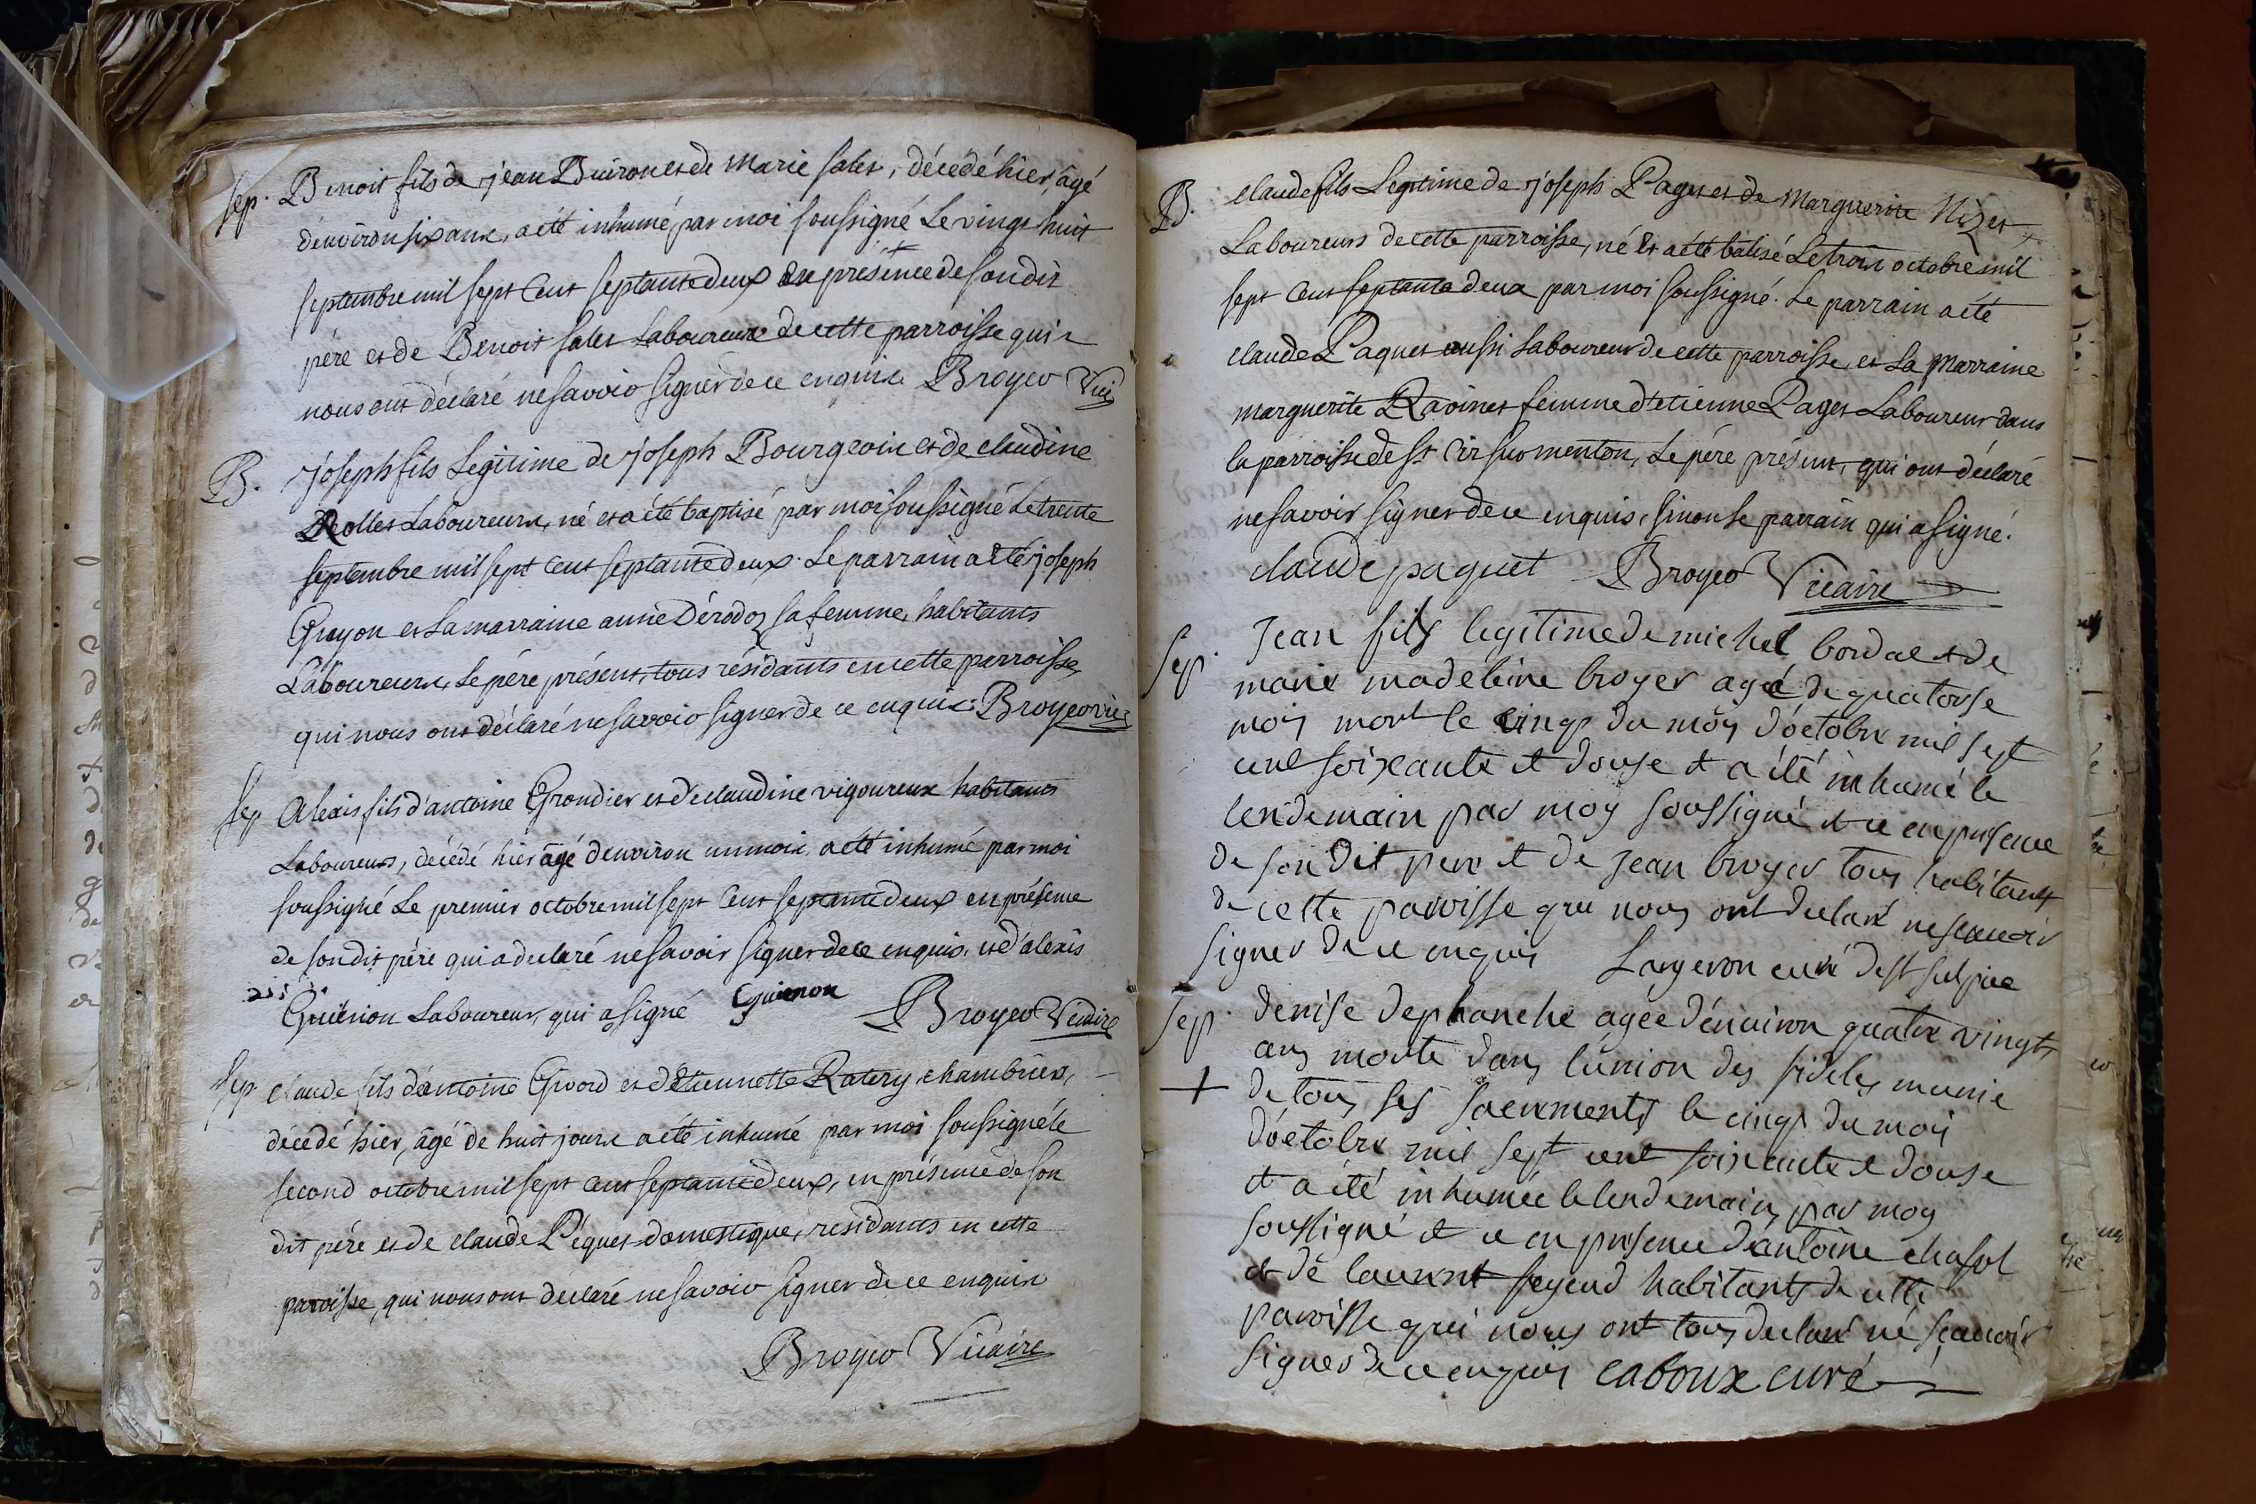 sep. Benoit fils de jean Buiron et de Marie Sales, décédé hier, âgé
d'environ six ans, a été inhumé par moi soussigné Le vingt huit
septembre mil sept Cent septante deux en présence de son dit
père et de Benoit Sales Laboureurs de cette parroisse qui
nous ont déclaré ne savoir signer de ce enquis. Broyer Vic
B. joseph fils Legitime de joseph Bourgeois et de claudine
Rollet Laboureurs, né et a été baptisé par moi soussigné Le trente
septembre mil sept Cent septante deux. Le parrain a été joseph
Guyon et La marraine anne Dérodoz sa femme, habitants
Laboureurs, Le père présent, tous résidants en cette parroisse,
qui nous ont déclaré ne savoir signer de ce enquis. Broyer vic
sep Alexis fils d'antoine Grondier et de claudine vigoureux habitants
Laboureurs, décédé hier âgé d'environ un mois a été inhumé par moi
soussigné Le premier octobre mil sept Cent septante deux en présence
de son dit père qui a declaré ne savoir signer de ce enquis, et d'alexis
Guienon Laboureur, qui a signé Guienon Broyer Vicaire
sep claude fils d'antoine Givord et d'Etiennette Ratery chambrier,
décédé hier, âgé de huit jours a été inhumé par moi soussigné le
second octobre mil sept Cent septante deux, en présence de son
dit père et de claude Péquet domestique, residants en cette
paroisse, qui nous ont déclaré ne savoir signer de ce enquis
Broyer Vicaire
B. claude fils Legitime de joseph Pages et de Marguerite Nizet
Laboureurs de cette parroisse, né et a été batisé Le trois octobre mil
sept Cent septante deux par moi soussigné. Le parrain a été
claude Paquet aussi Laboureur de cette parroisse, et La Marraine
marguerite Ravinet femme d'etienne Pages Laboureur dans
la parroisse de St Cir sur menton, Le père présent, qui ont déclaré
ne savoir signer de ce enquis, sinon Le parrain qui a signé.
claude paquet Broyer Vicaire
sep. Jean fils legitime de michel bordat et de
marie madeleine broyer agé de quatorse
mois mort le cinq du mois d'octobre mil sept
cent soixante et douse et a été inhumé le
lendemain par moy soussigné et ce en presence
de son dit pere et de Jean broyer tous habitants
de cette paroisse qui nous ont declaré ne sçauoir
signer de ce enquis Largeron curé de st sulpice
sep. denise dephanche agée d'enuiron quatre vingts
ans morte dans l'union des fideles munie
+ de tous ses sacrements le cinq du mois
d'octobre mil sept cent soixante et douse
et a été inhumée le lendemain par moy
soussigné et ce en presence d'antoine chasol
et de laurent feyeud habitants de cette
paroisse qui nous ont tous declaré ne sçauoir
signer de ce enquis caboux curé